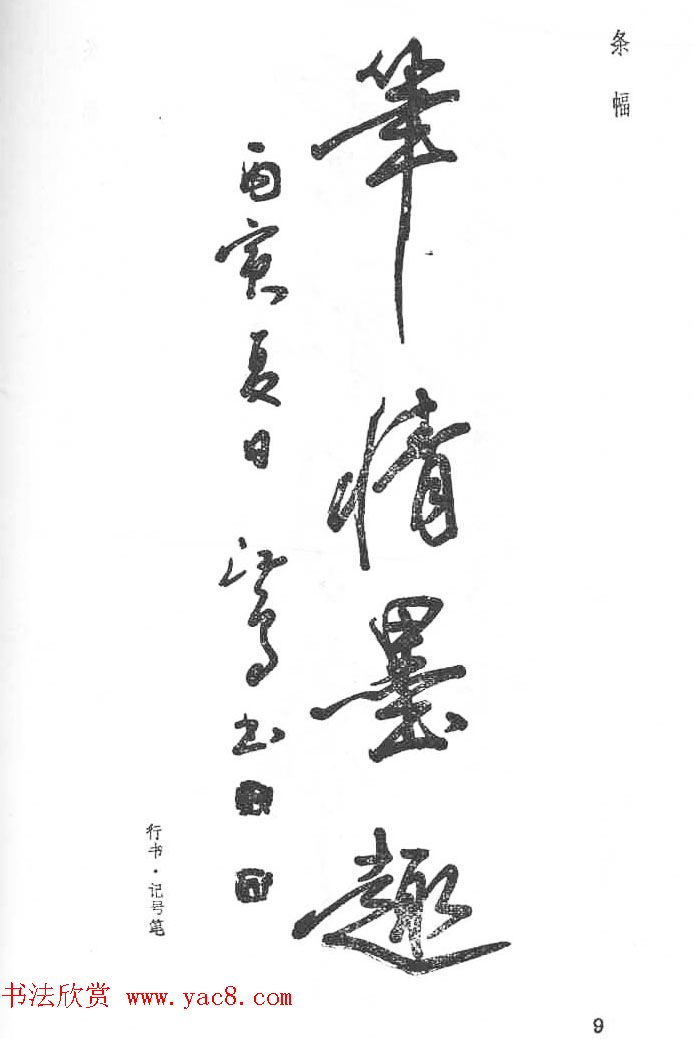 条幅
筆情墨趣
丙寅夏日 江鸟书
行书·记号笔
书法欣赏 www.yac8.com
9